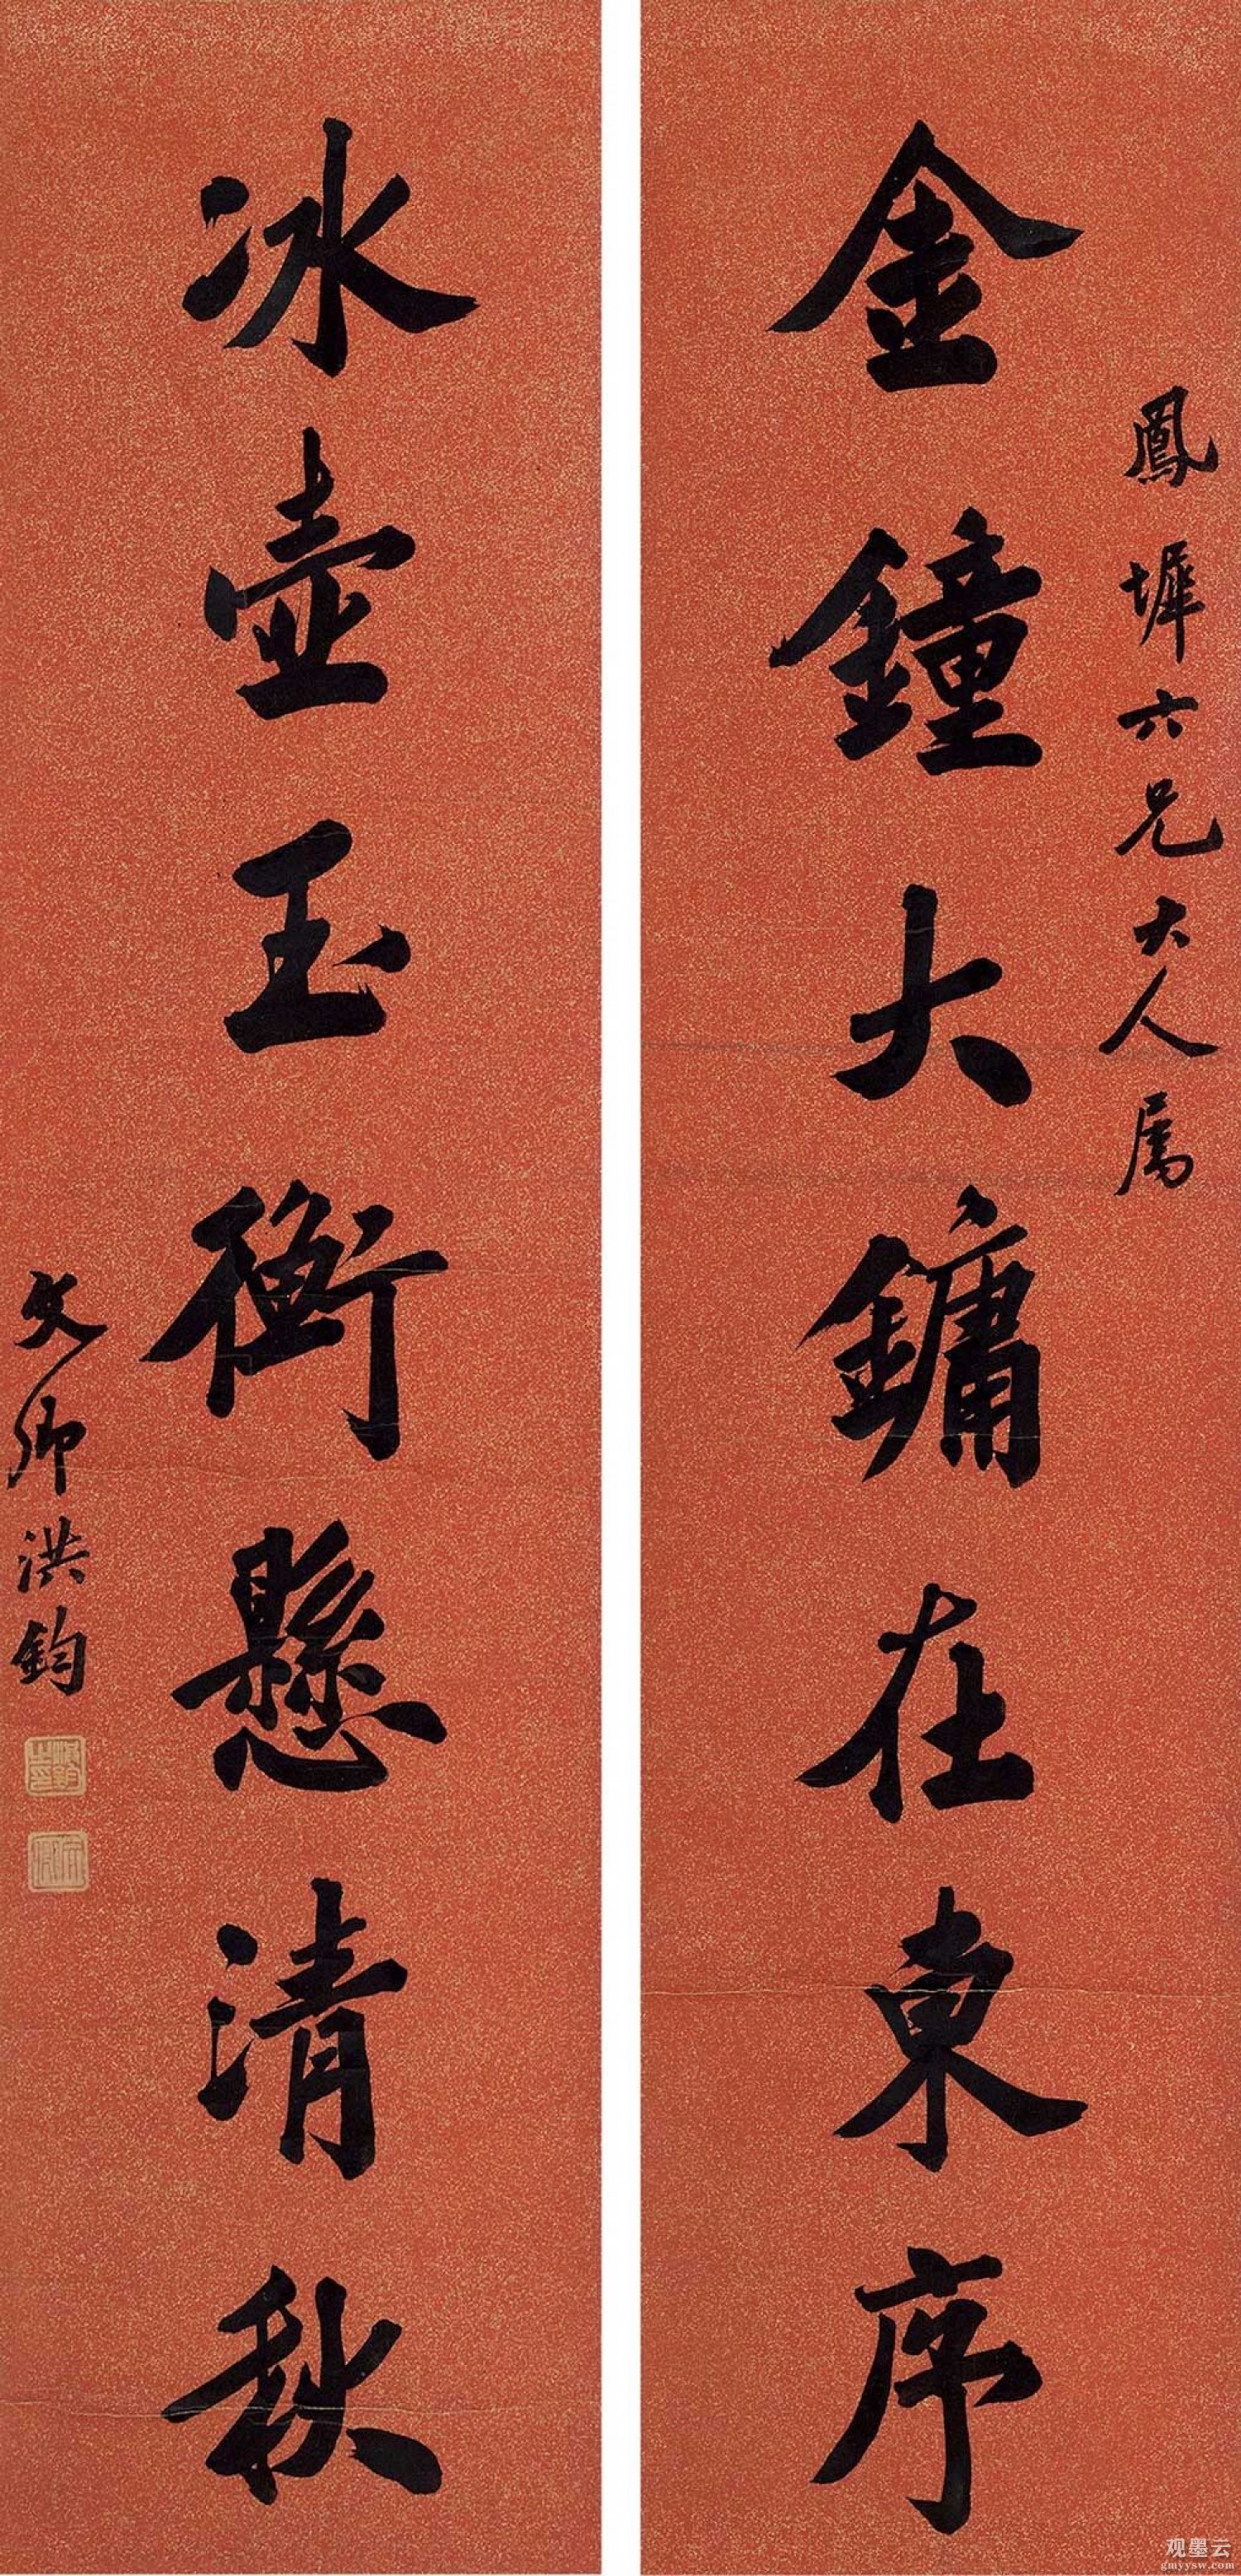 鳳墀六兄大人属
金鐘大鏞在東序
冰壺玉衡懸清秋
文卿洪鈞
观墨云
gmyysw.com